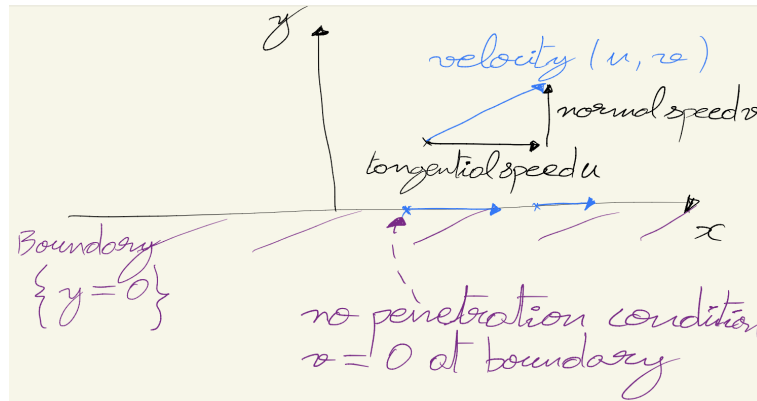 y
velocity (u, v)
normal speed v
tangential speed u
x
Boundary
{ y = 0 }
no penetration condition
v = 0 at boundary